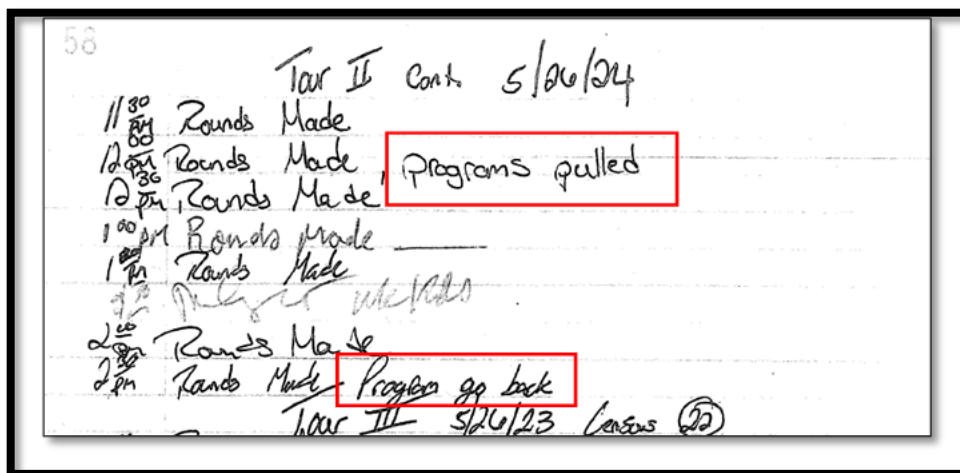 58
Tour II Cont. 5/26/24
11 30 AM Rounds Made
12 00 pm Rounds Made, programs pulled
12 30 pm Rounds Made
1 00 pM Rounds Made
1 30 pm Rounds Made
2 00 pm Rounds Made
2 30 pm Rounds Made Program go back
Tour III 5/26/23 Census 22